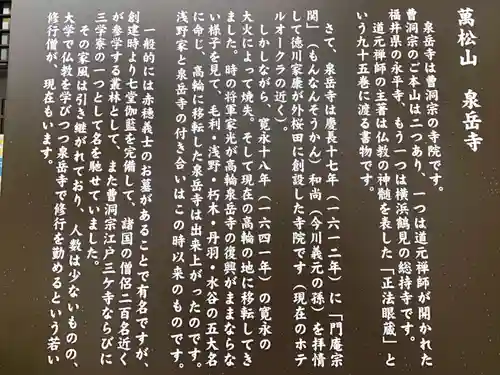 萬松山　泉岳寺
泉岳寺は曹洞宗の寺院です。
曹洞宗のご本山は二つあり、一つは道元禅師が開かれた
福井県の永平寺、もう一つは横浜鶴見の総持寺です。
道元禅師の主著は仏教の神髄を表した「正法眼蔵」と
いう九十五巻に渡る書物です。
さて、泉岳寺は慶長十七年（一六一二年）に「門庵宗
関」（もんなんそうかん）和尚（今川義元の孫）を拝請
して徳川家康が外桜田に創設した寺院です（現在のホテ
ルオークラの近く）。
しかしながら、寛永十八年（一六四一年）の寛永の
大火によって焼失。そして現在の高輪の地に移転してき
ました。時の将軍家光が高輪泉岳寺の復興がままならな
い様子を見て、毛利・浅野・朽木・丹羽・水谷の五大名
に命じ、高輪に移転した泉岳寺は出来上がったのです。
浅野家と泉岳寺の付き合いはこの時以来のものです。
一般的には赤穂義士のお墓があることで有名ですが、
創建時より七堂伽藍を完備して、諸国の僧侶二百名近く
が参学する叢林として、また曹洞宗江戸三ケ寺ならびに
三学寮の一つとして名を馳せていました。
その家風は引き継がれており、人数は少ないものの、
大学で仏教を学びつつ泉岳寺で修行を勤めるという若い
修行僧が、現在もいます。